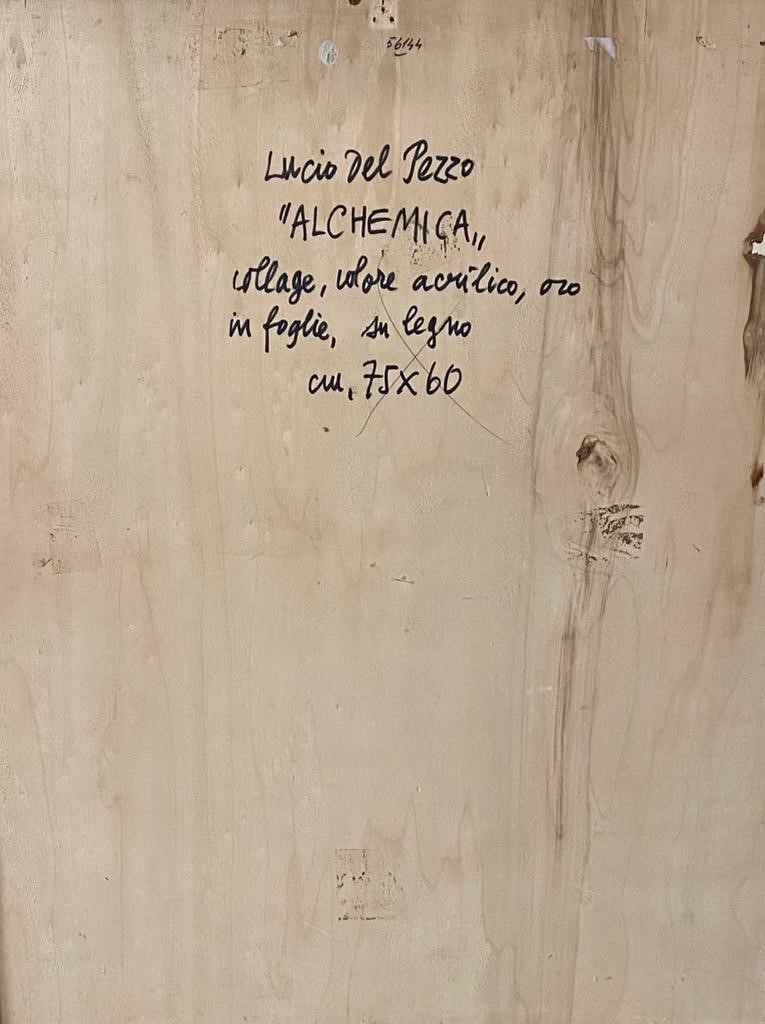 56144
Lucio Del Pezzo
"ALCHEMICA„
collage, colore acrilico, oro
in foglie, su legno
cm, 75x60